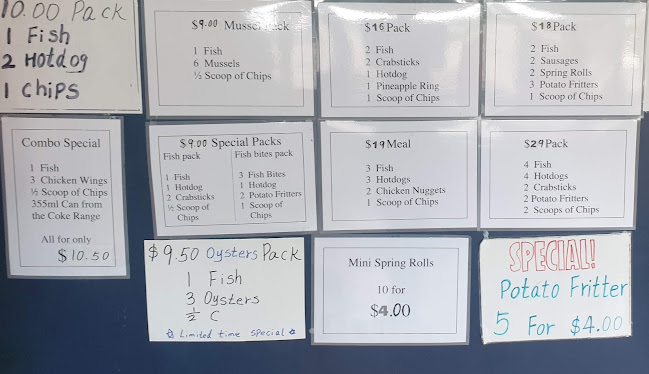 10.00 Pack
1 Fish
2 Hotdog
1 Chips
$9.00 Mussel Pack
1 Fish
6 Mussels
½ Scoop of Chips
$16 Pack
2 Fish
2 Crabsticks
1 Hotdog
1 Pineapple Ring
1 Scoop of Chips
$18 Pack
2 Fish
2 Sausages
2 Spring Rolls
3 Potato Fritters
1 Scoop of Chips
Combo Special
1 Fish
3 Chicken Wings
½ Scoop of Chips
355ml Can from
the Coke Range
All for only
$10.50
$9.00 Special Packs
Fish pack
1 Fish
1 Hotdog
2 Crabsticks
½ Scoop of
Chips
Fish bites pack
3 Fish Bites
1 Hotdog
2 Potato Fritters
1 Scoop of
Chips
$19 Meal
3 Fish
3 Hotdogs
2 Chicken Nuggets
1 Scoop of Chips
$29 Pack
4 Fish
4 Hotdogs
2 Crabsticks
2 Potato Fritters
2 Scoops of Chips
$9.50 Oysters Pack
1 Fish
3 Oysters
½ C
Limited time special
Mini Spring Rolls
10 for
$4.00
SPECIAL!
Potato Fritter
5 For $4.00